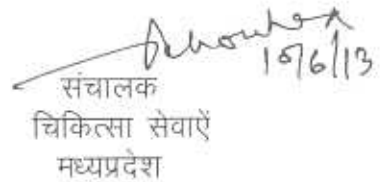 10/6/13
संचालक
चिकित्सा सेवाऐं
मध्यप्रदेश